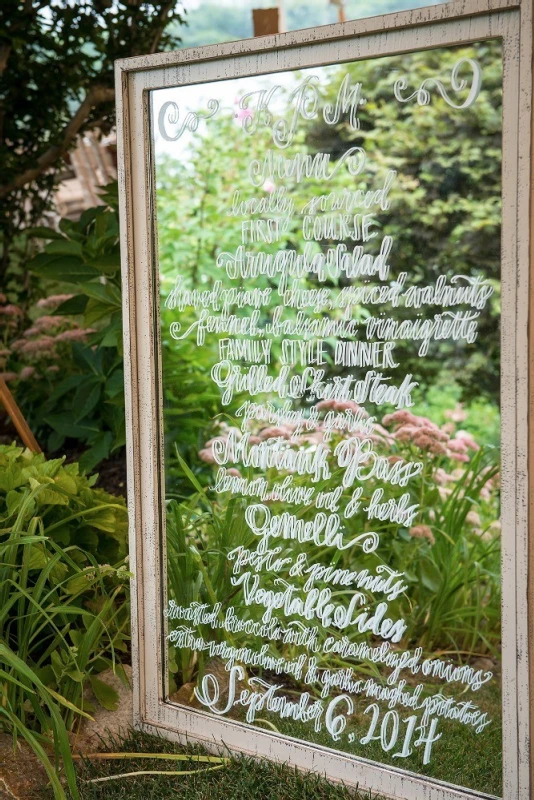 K & M
Menu
locally sourced
FIRST COURSE
Arugula Salad
shaved goat cheese, spiced walnuts
fennel, balsamic vinaigrette
FAMILY STYLE DINNER
Grilled Skirt Steak
parsley & garlic
Monk Bass
lemon, olive oil & herbs
Gemelli
pesto & pine nuts
Vegetable Sides
roasted broccoli with caramelized onions
extra virgin olive oil & garlic mashed potatoes
September 6, 2014